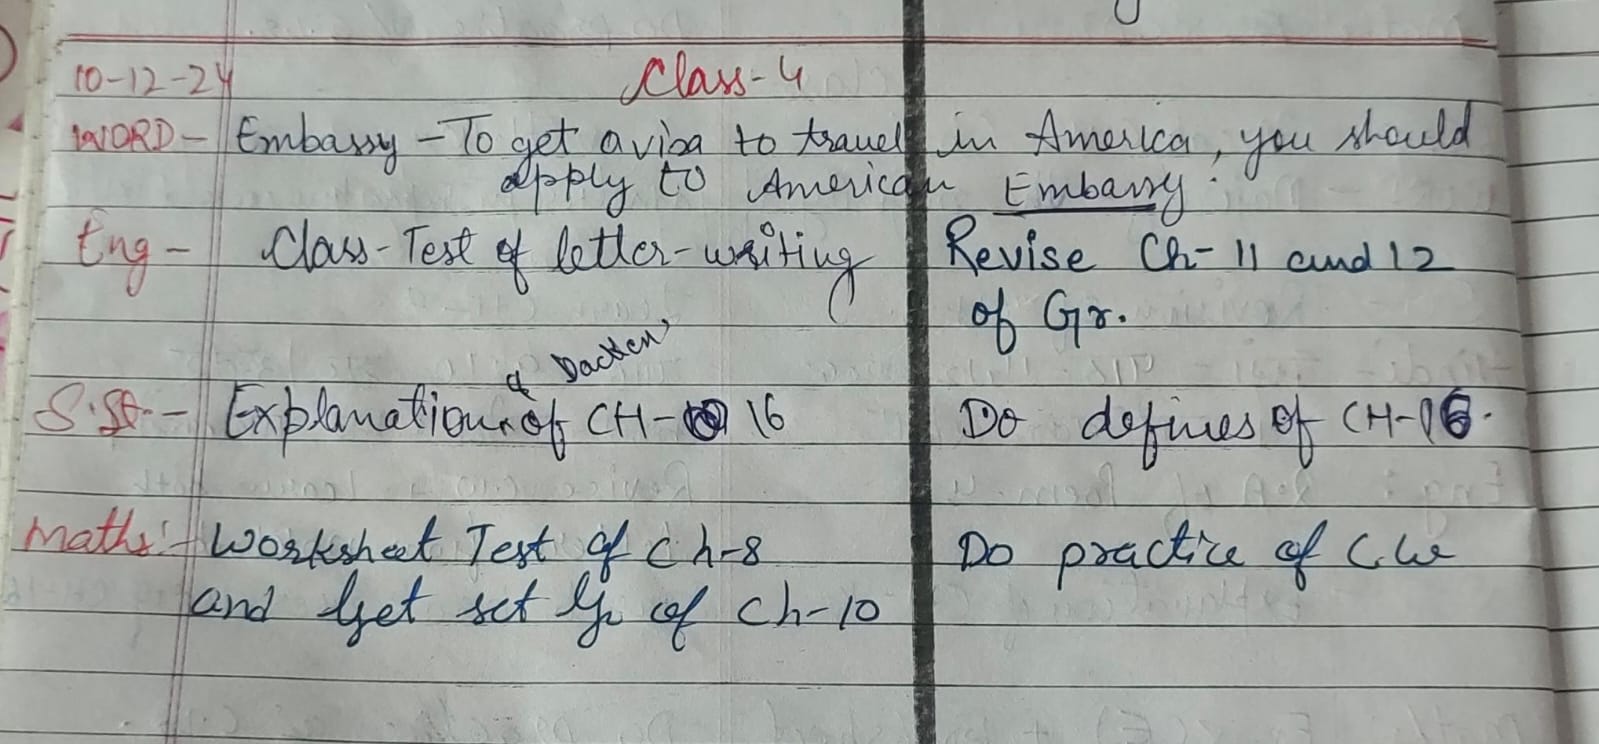 10-12-24 Class-4
WORD- Embassy - To get a visa to travel in America, you should
apply to American Embassy.
Eng- Class-Test of letter-writing Revise Ch-11 and 12
of Gr.
S.St.- Explanation of CH- 16 Do defines of CH-16.
Maths:- Worksheet Test of Ch-8 Do practice of C.W
and Get set Go of Ch-10